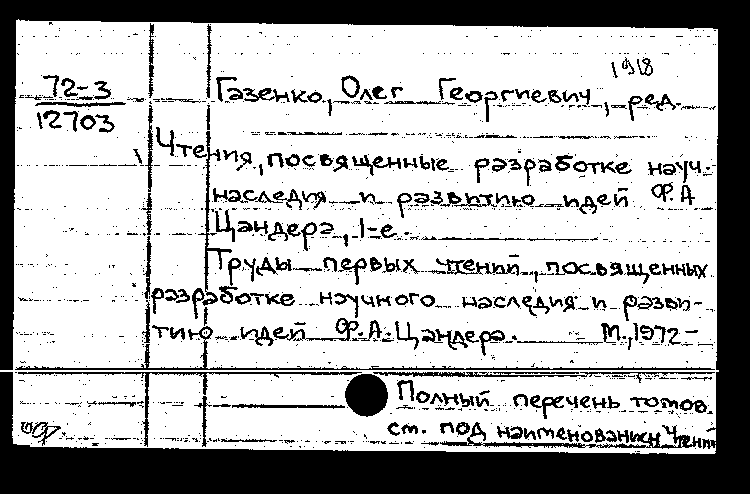 1918
72-3
12703
Газенко, Олег Георгиевич, ред.
Чтения, посвященные разработке науч.
наследия и развитию идей Ф.А
Цандера, 1-е.
Труды первых чтений, посвященных
разработке научного наследия и разви-
тию идей Ф.А.Цандера. М.,1972-
Полный перечень томов
см. под наименованием Чтений